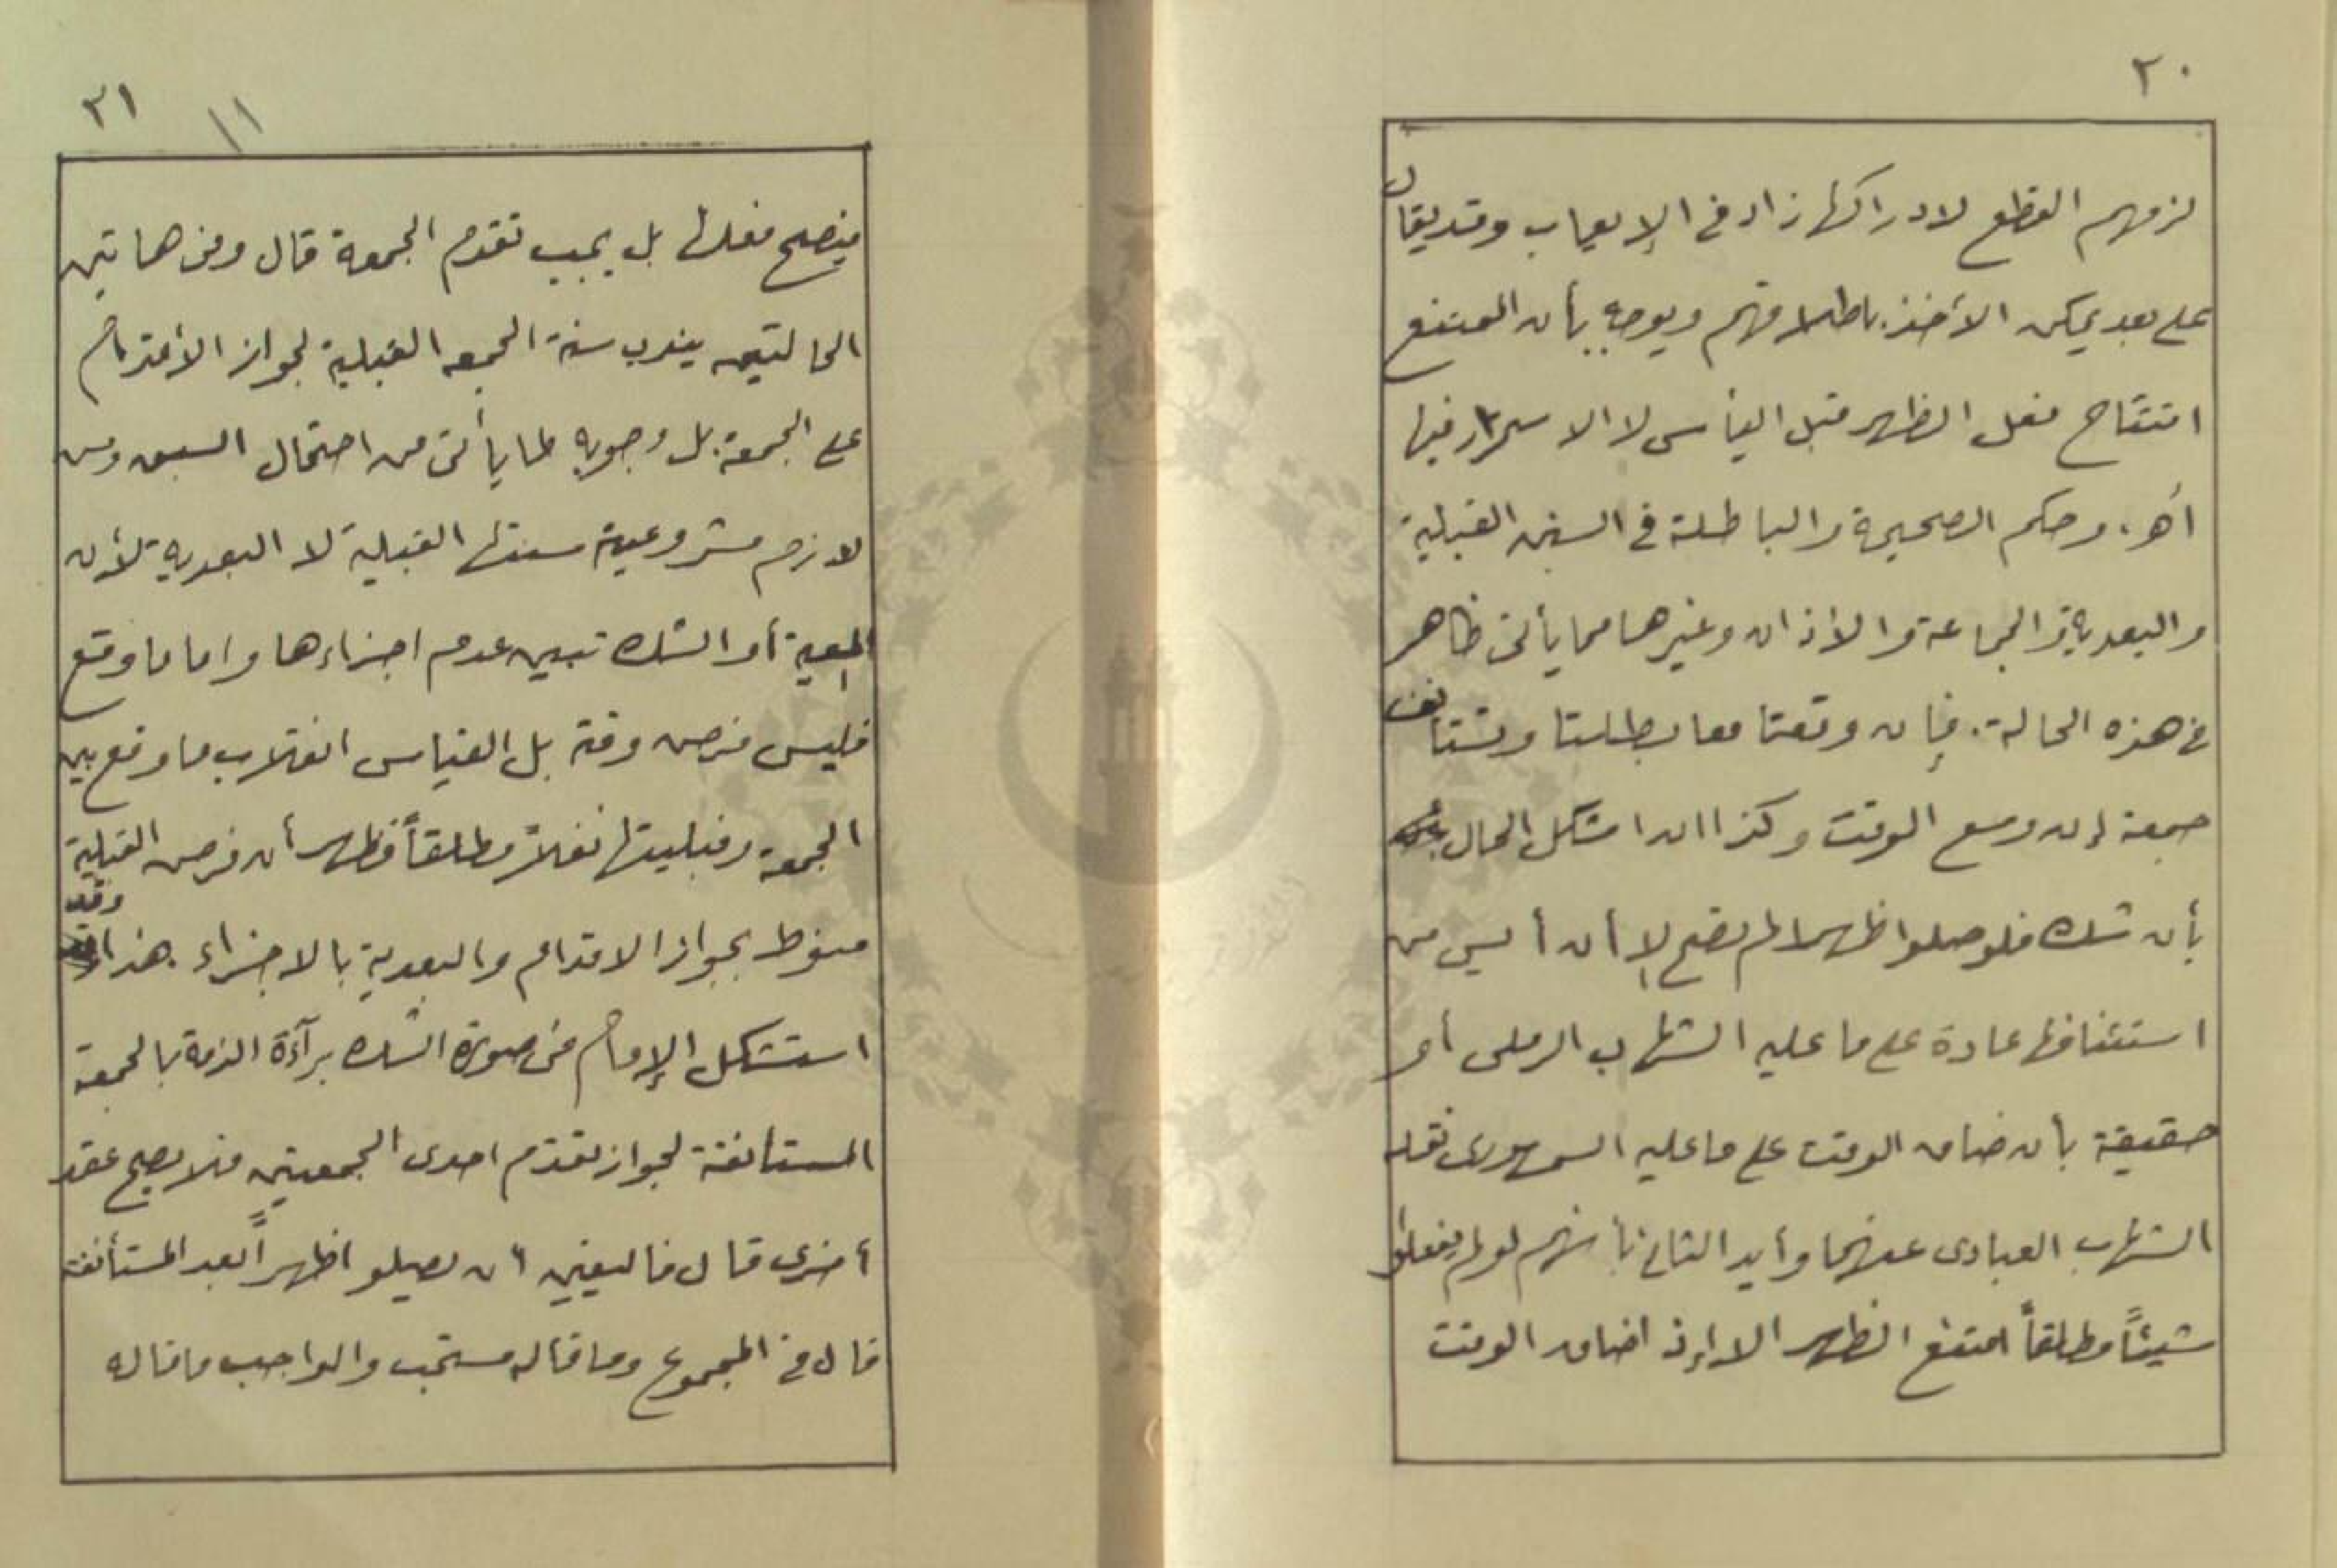 ٢٠
لزمهم القطع لادراكها زاد في الإيعاب وقد يقال
على بعد يمكن الأخذ باطلاقهم ويوجه بأن الممتنع
افتتاح فعل الظهر قبل اليأس لا الاستمرار فيها
أهـ. وحكم الصحيحة والباطلة في السنن القبلية
والبعدية والجماعة والأذان وغيرها مما يأتى ظاهر
في هذه الحالة. فإن وقعتا معا بطلتا وتستأنف
جمعة إن وسع الوقت وكذا ان اشكل الحال
بأن شك فلو صلوا ظهرا لم تصح إلا أن أيس من
استئنافها عادة على ما عليه الشهاب الرملى أو
حقيقة بأن ضاق الوقت على ما عليه السمهودى نقله
الشهاب العبادى عنهما وأيد الثانى بأنهم لو لم يفعلوا
شيئاً مطلقاً امتنع الظهر الا إذ اضاق الوقت
٢١
١١
فيصح فعلها بل يجب تقدم الجمعة قال وفى هاتين
الحالتين يندب سنة الجمعه القبلية لجواز الأقدام
على الجمعة بل وجوبه لما يأتى من احتمال السبق ومن
لازم مشروعية سنتها القبلية لا البعدية لأن
المعية أو الشك تبين عدم اجزاءها واما ما وقع
فليس فرض وقته بل القياس انقلاب ما وقع بين
الجمعة وقبليتها نفلاً مطلقاً فظهر أن فرض القبلية
منوط بجواز الاقدام والبعدية بالاجزاء. هذا وقد
استشكل الإمام فى صورة الشك برآءة الذمة بالجمعة
المستأنفة لجواز تقدم احدى الجمعتين فلا يصح عقد
أخرى قال فاليقين ان يصلو اظهراً بعد المستأنفة
قال فى المجموع وما قاله مستحب والواجب ما قاله